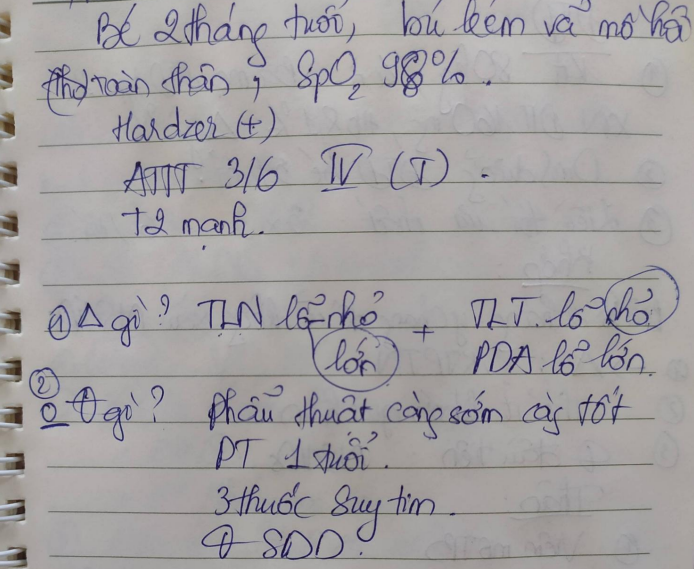 Bé 2 tháng tuổi, bú kém vã mồ hôi
(thở) toàn thân, SpO₂ 98%.
Hardzer (+)
ATTT 3/6 IV (T).
T2 mạnh.
① Δ gì? TLN lỗ nhỏ + TLT. lỗ nhỏ
lớn PDA lỗ lớn.
② gì? Phẫu thuật càng sớm càg tốt
PT 1 tuổi.
3 thuốc Suy tim.
SDD.